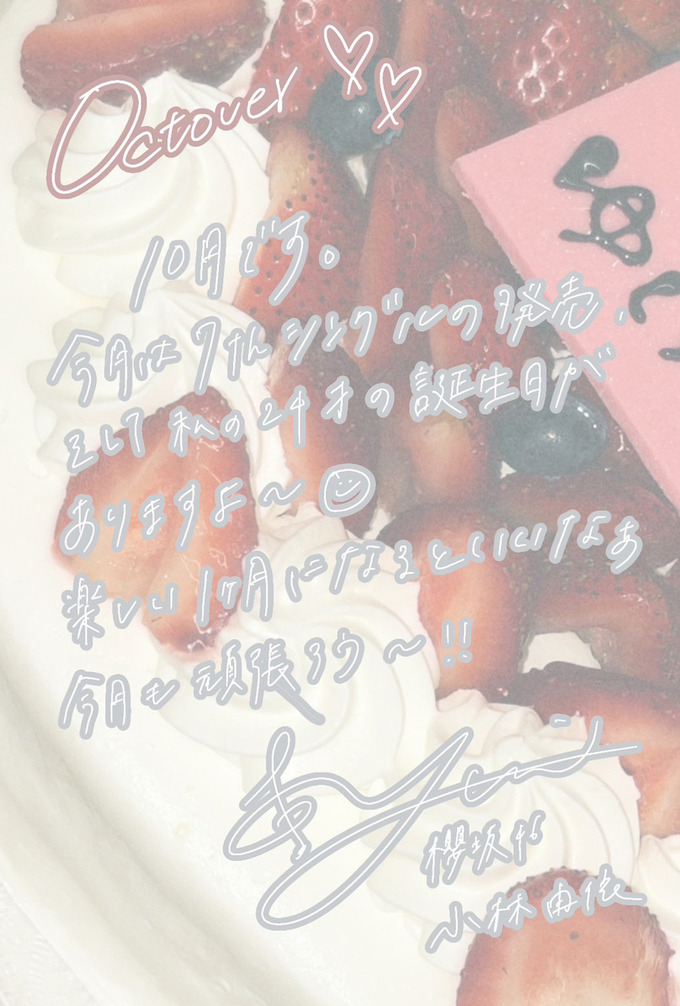 Octover
10月です。
今月は7thシングルの発売、
そして私の24才の誕生日が
ありますよ〜
楽しい1ヶ月になるといいなあ
今月も頑張ろウ〜!!
Yui
櫻坂46
小林由依
ゆい